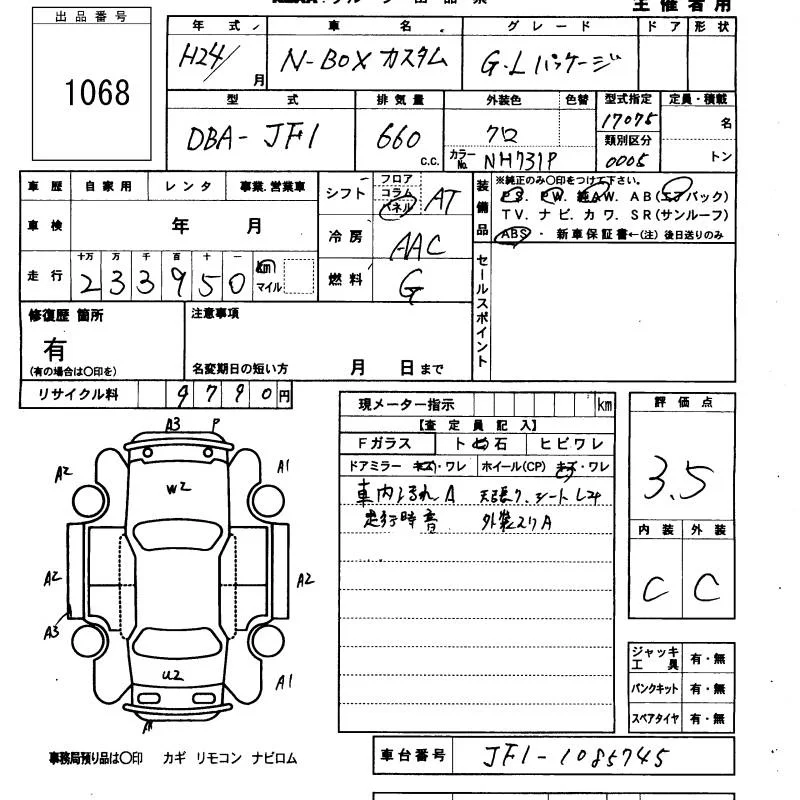 主催者用
出品番号
1068
年式 車名 グレード ドア 形状
H24/ 月 N-BOXカスタム G・Lパッケージ
型式 排気量 外装色 色替 型式指定 定員・積載
DBA-JF1 660 c.c. クロ 17075 名
類別区分
カラーNo. NH731P 0005 トン
車歴 自家用 レンタ 事業.営業車
車検 年 月
走行 十万 万 千 百 十 一
233950 km マイル
シフト フロア コラム パネル AT
冷房 AAC
燃料 G
装備品
※純正のみ○印をつけて下さい。
PS. PW. 純AW. AB(エアバック)
TV. ナビ. カワ. SR(サンルーフ)
ABS ・ 新車保証書←(注) 後日送りのみ
セールスポイント
修復歴 箇所
有
(有の場合は○印を)
注意事項
名変期日の短い方 月 日まで
リサイクル料 9790円
現メーター指示 km
【査定員記入】
Fガラス ト 石 ヒビワレ
ドアミラー キズ・ワレ ホイール(CP) キズ・ワレ
車内 A 天張り、シート
走行時音 外装スリA
評価点
3.5
内装 外装
C C
A3 P
A2 A1
W2
A2 A2
A3
U2 A1
ジャッキ工具 有・無
パンクキット 有・無
スペアタイヤ 有・無
事務局預り品は○印 カギ リモコン ナビロム
車台番号 JF1-1085745